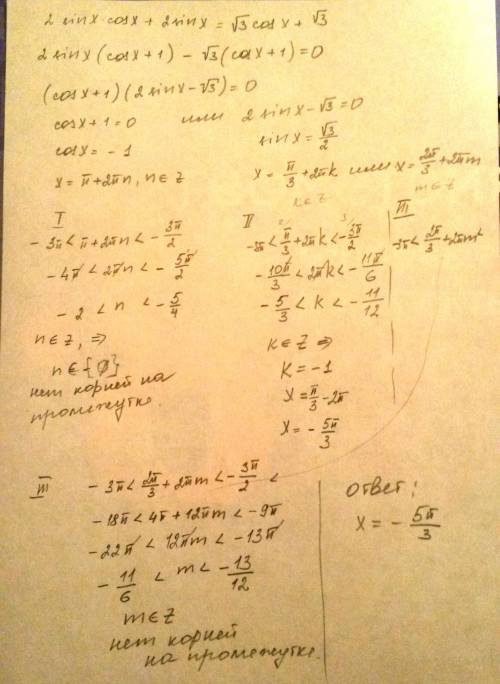 2 sinx · cosx + 2 sinx = √3 cosx + √3
2 sinx (cosx + 1) - √3 (cosx + 1) = 0
(cosx + 1)(2 sinx - √3) = 0
cosx + 1 = 0 или 2 sinx - √3 = 0
cosx = -1
x = π + 2πn, n ∈ Z
sinx = √3/2
x = π/3 + 2πk или x = 2π/3 + 2πm
k ∈ Z m ∈ Z
I
-3π < π + 2πn < -3π/2
-4π < 2πn < -5π/2
-2 < n < -5/4
n ∈ Z, ⇒
n ∈ {∅}
нет корней на
промежутке.
II
-3π < π/3 + 2πk < -3π/2
-10π/3 < 2πk < -11π/6
-5/3 < k < -11/12
k ∈ Z ⇒
k = -1
x = π/3 - 2π
x = -5π/3
III
-3π < 2π/3 + 2πm <
III
-3π < 2π/3 + 2πm < -3π/2 <
-18π < 4π + 12πm < -9π
-22π < 12πm < -13π
-11/6 < m < -13/12
m ∈ Z
нет корней
на промежутке.
Ответ:
x = -5π/3